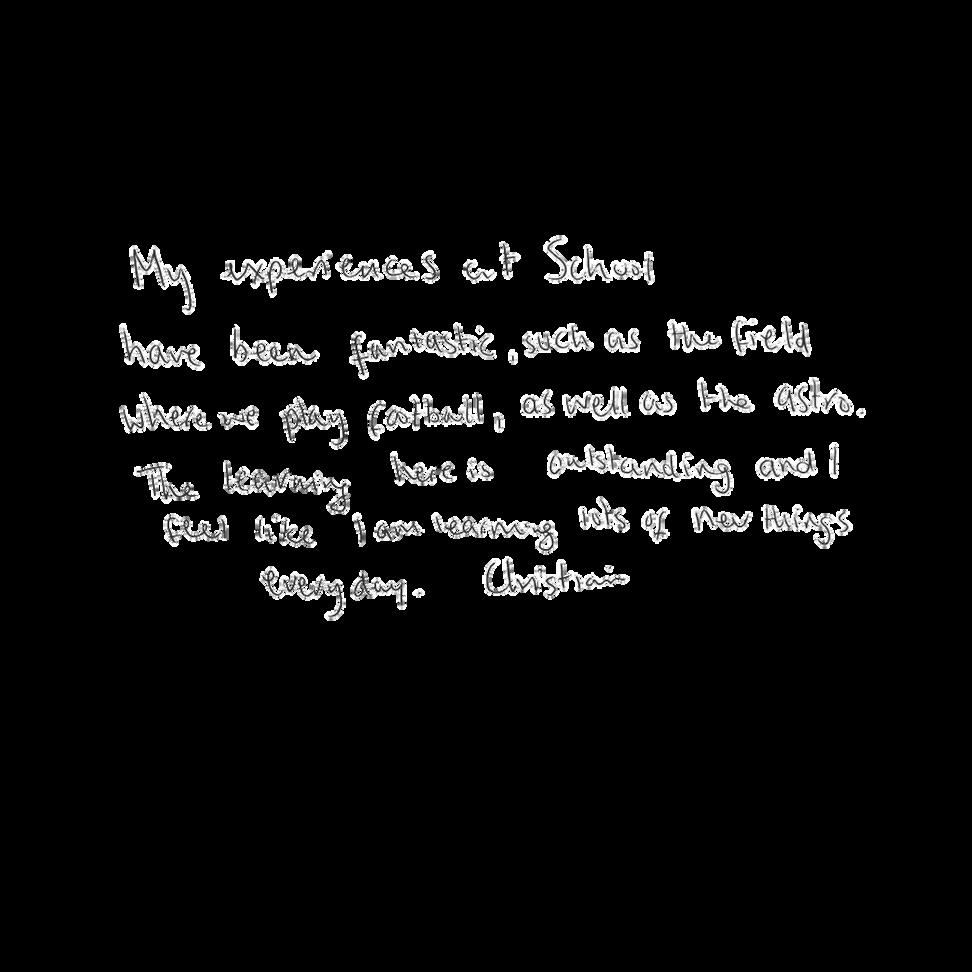 My experiences at School
have been fantastic, such as the field
where we play football, as well as the astro.
The learning here is outstanding and I
feel like I am learning lots of new things
every day. Christian